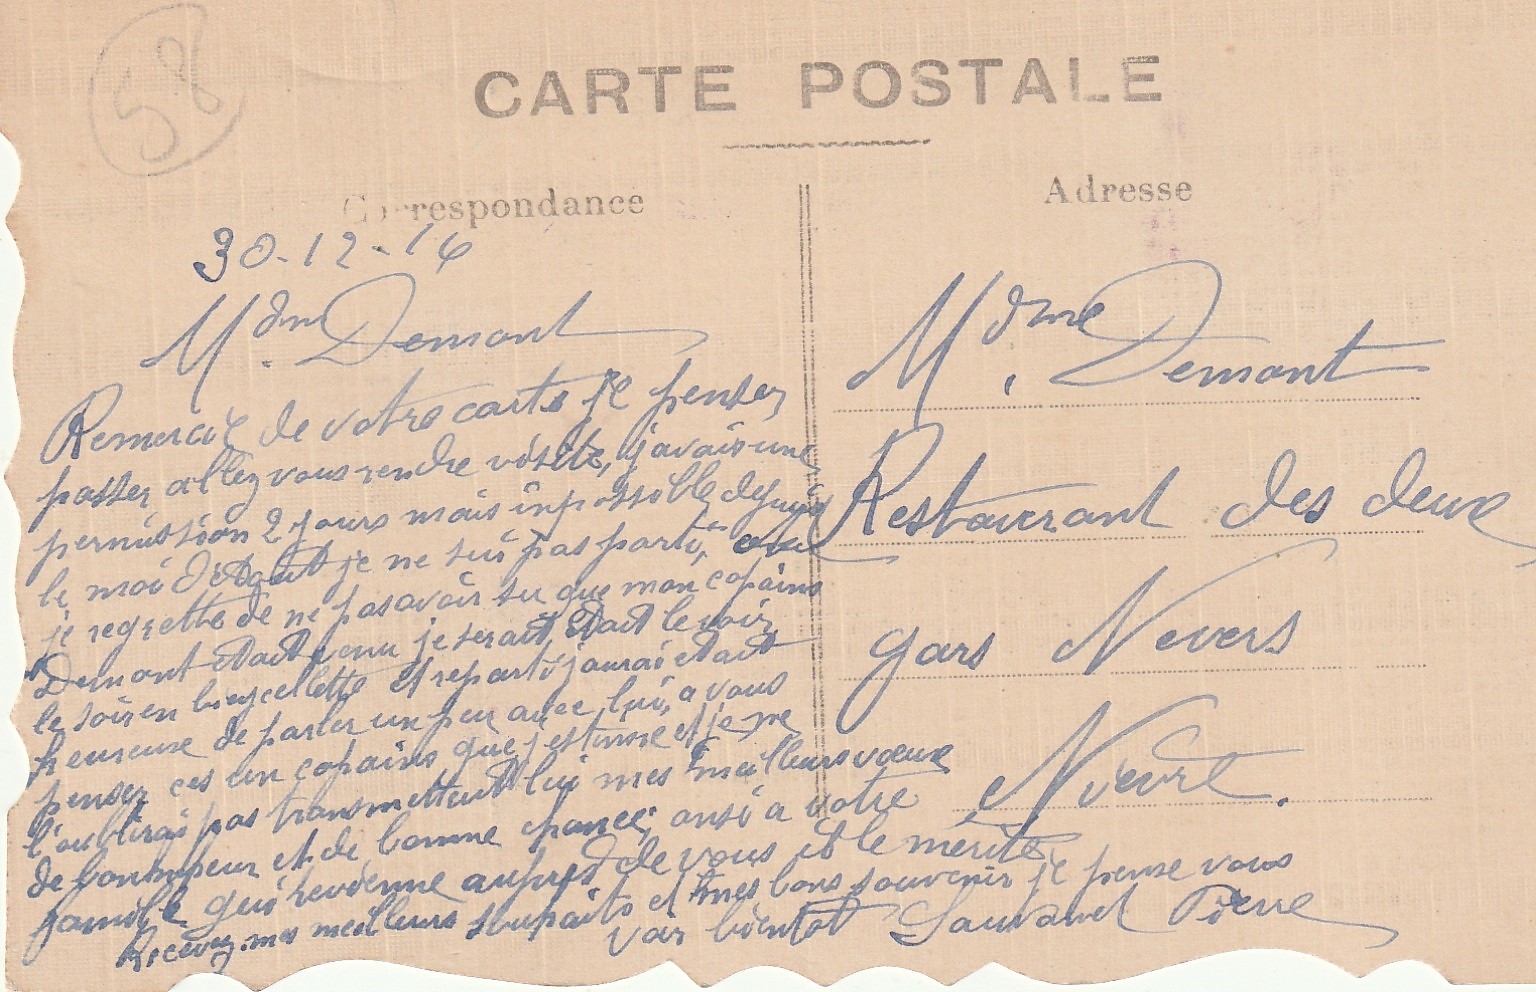 58
CARTE POSTALE
Correspondance
30-12-16
Mdm. Demont
Remercie de votre carte je penser
passer allez vous rendre visite, j'avais une
permission 2 jours mais inpossible depuis
le moi D' je ne sui pas parti,
je regrette de ne pas avoir su que mon copains
Demont etait venu je serait etait le voir
le soir en bicyclette et reparti j'aurai etait
heureuse de parler un peu avec lui, a vous
penser ces un copains que j'estime et je ne
l'oublirai pas transmettent lui mes meilleurs vœux
de bonheur et de bonne chance, ausi a votre
famille qui revienne aupres de vous il le merite
Recevez mes meilleurs souhaits et mes bons souvenir je pense vous
voir bientot Sauvanet Pierre
Adresse
Mdme. Demont
Restaurant des deux
gars Nevers
Nievre.